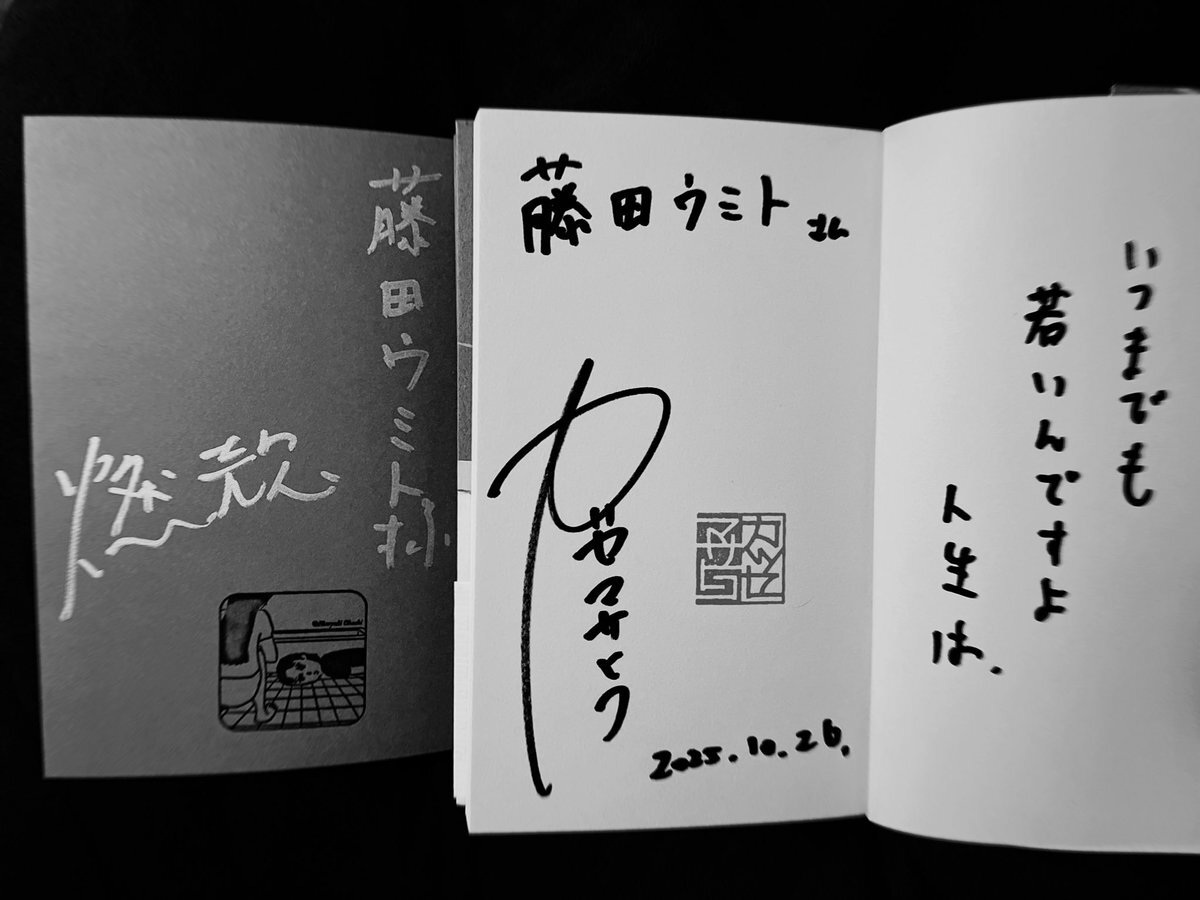 藤田ウミト様
燃え殻
©Hiroyuki Ohashi
藤田ウミトさん
カツセマサヒコ
カツセマサヒコ
2025.10.26.
いつまでも
若いんですよ
人生は、